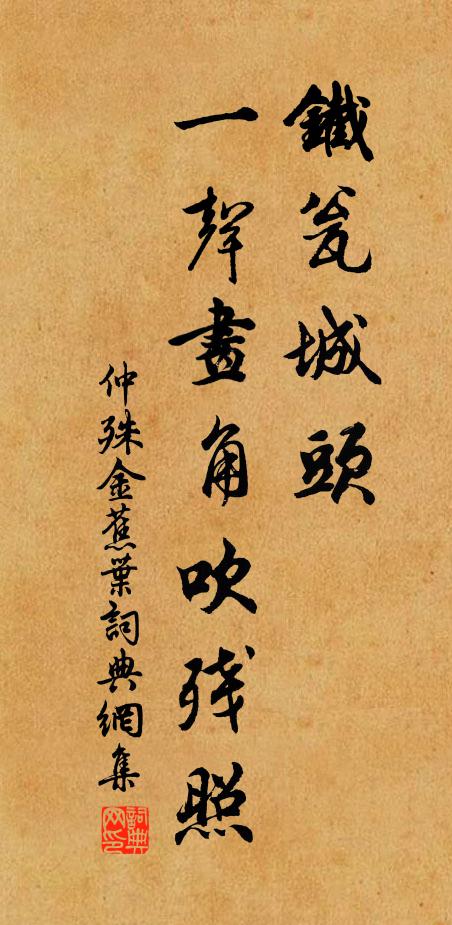 鐵瓮城頭
一聲畫角吹残照
仲殊金蕉葉詞典網集
詞典网印